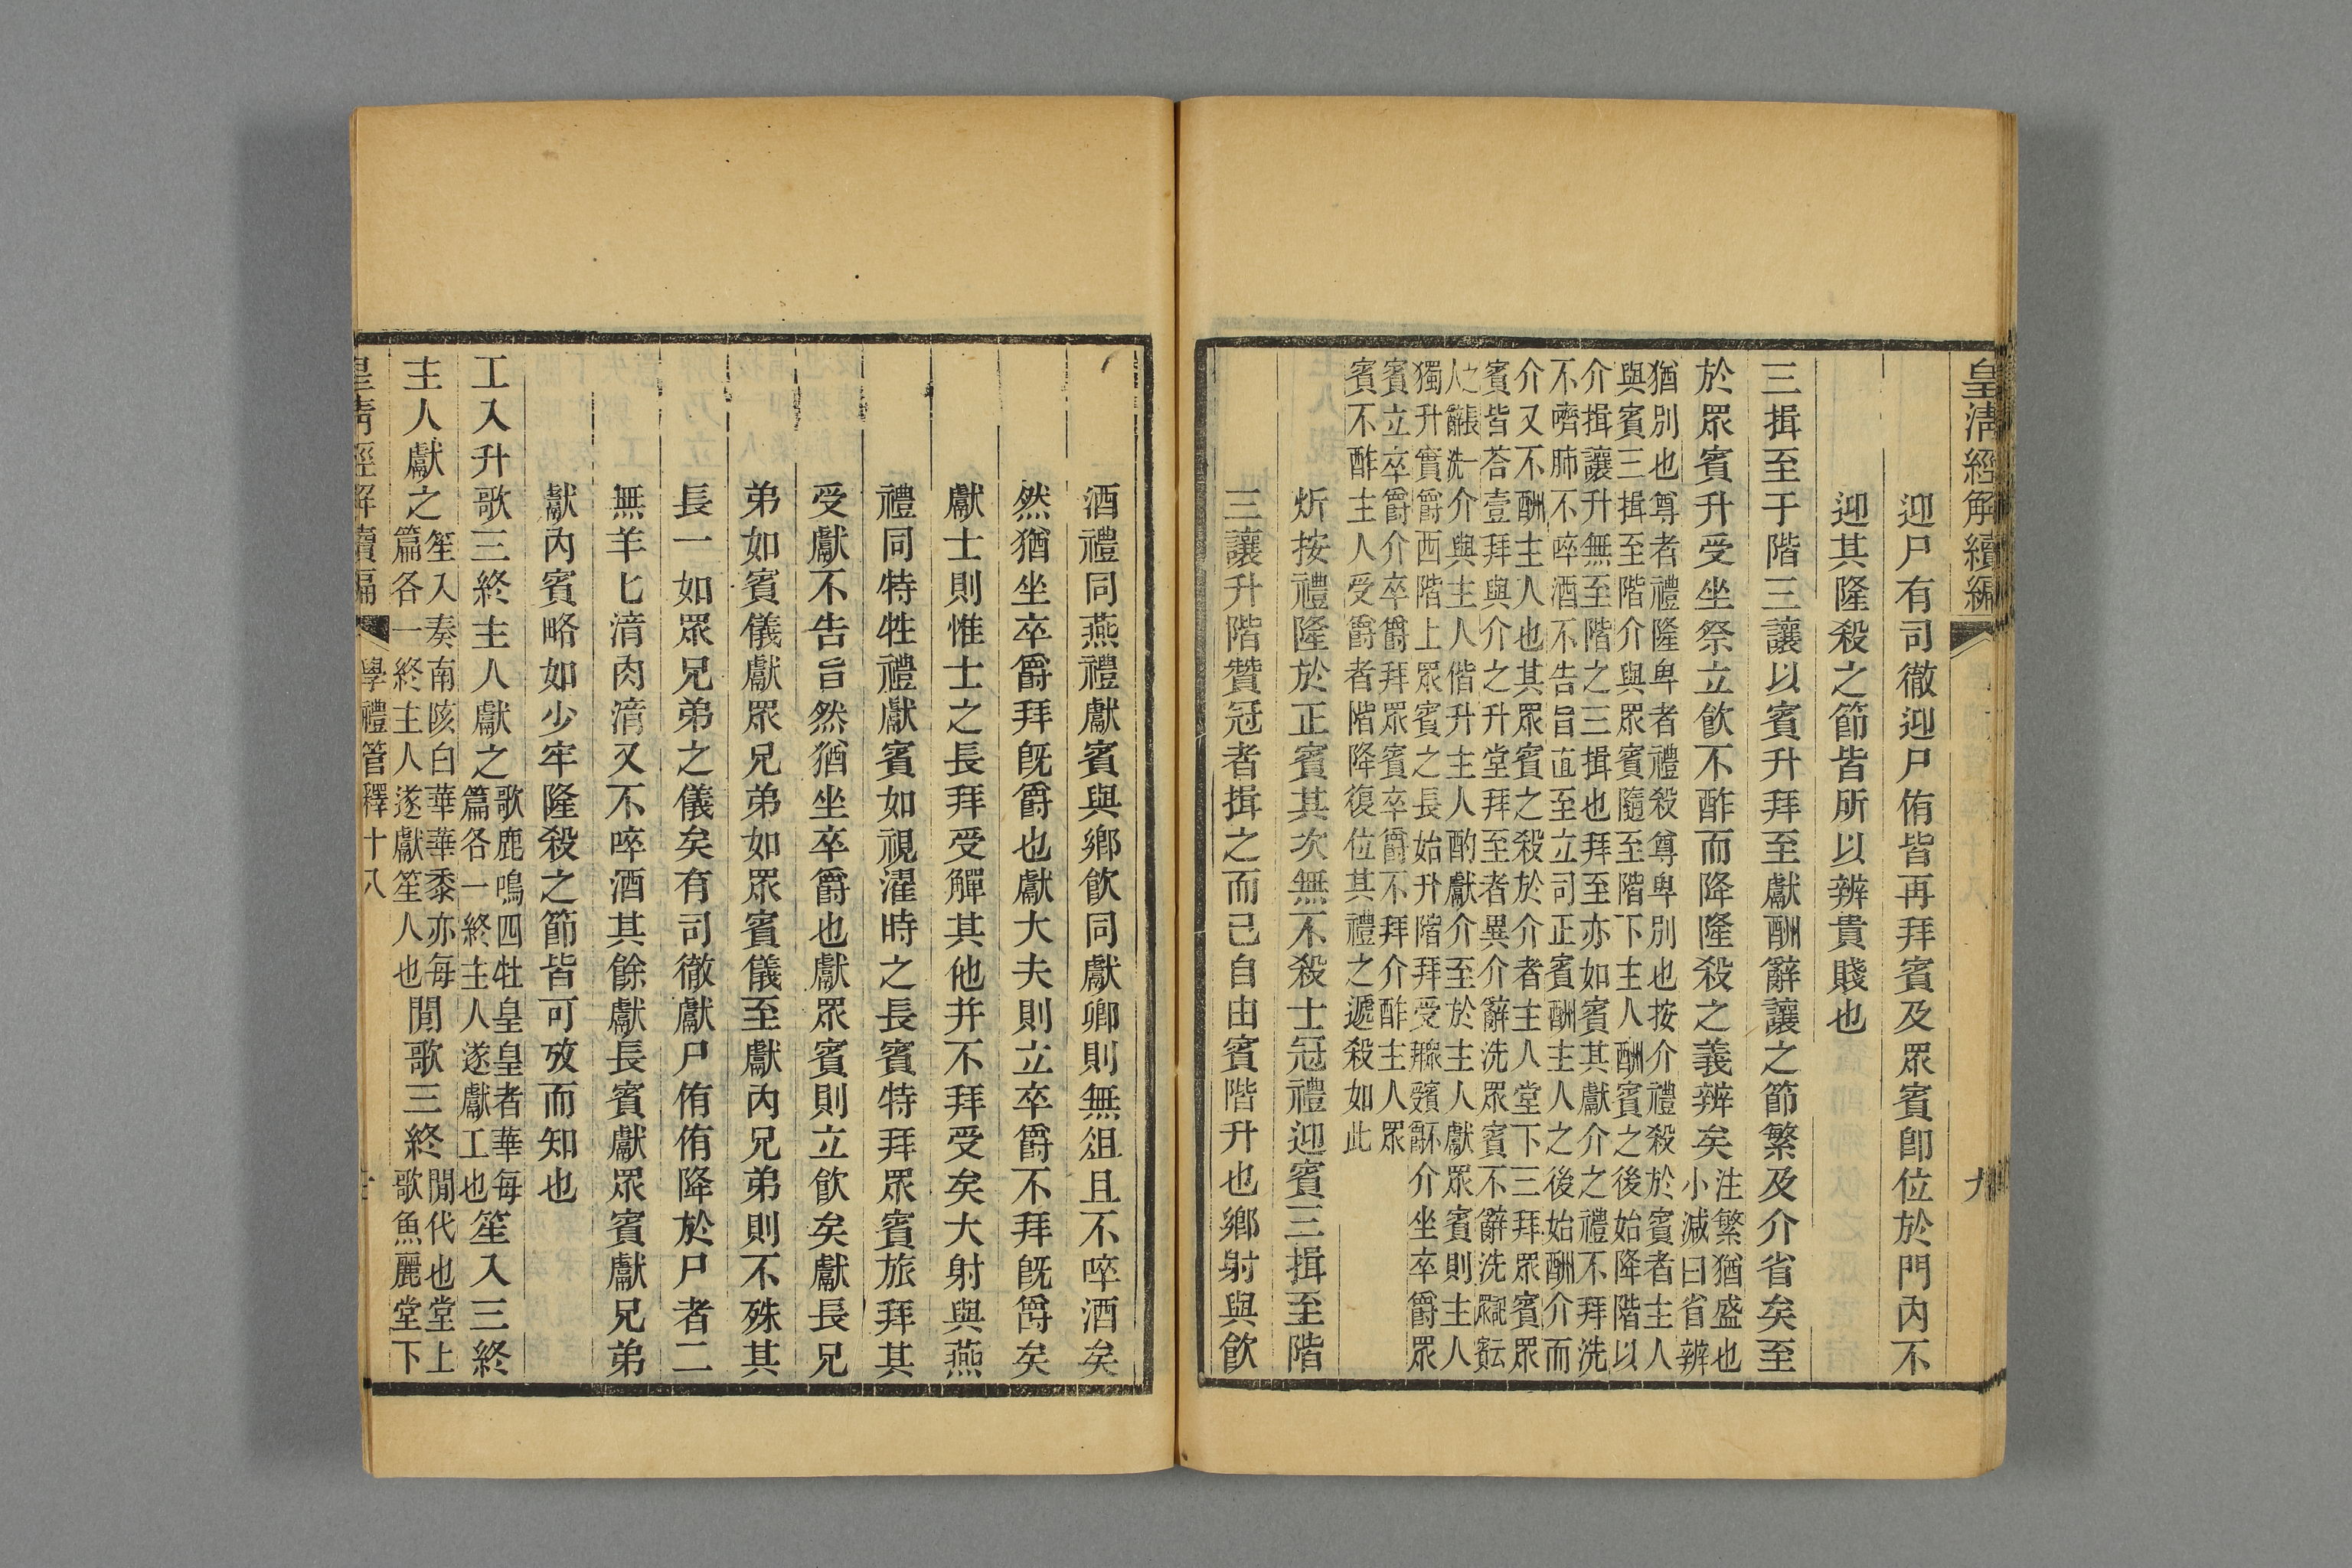 皇清經解續編 九
迎尸有司徹迎尸侑皆再拜賓及眾賓卽位於門內不
迎其隆殺之節皆所以辨貴賤也
三揖至于階三讓以賓升拜至獻酬辭讓之節繁及介省矣至
於眾賓升受坐祭立飲不酢而降隆殺之義辨矣
注繁猶盛也
小減曰省辨
猶別也尊者禮隆卑者禮殺尊卑別也按介禮殺於賓者主人
與賓三揖至階介與眾賓隨至階下主人酬賓之後始降階以
介揖讓升無至階之三揖也拜至亦如賓其獻介之禮不拜洗
不嚌肺不啐酒不告旨直至立司正賓酬主人之後始酬介而
介又不酬主人也其眾賓之殺於介者主人堂下三拜眾賓眾
賓皆荅壹拜與介之升堂拜至者異介辭洗眾賓不辭洗
介與主人偕升主人酌獻介至於主人獻眾賓則主人
獨升實爵西階上眾賓之長始升階拜受 介坐卒爵眾
賓立卒爵介卒爵拜眾賓卒爵不拜介酢主人眾
賓不酢主人受爵者階降復位其禮之遞殺如此
炘按禮隆於正賓其次無不殺士冠禮迎賓三揖至階
三讓升階贊冠者揖之而已自由賓階升也鄉射與飲
酒禮同燕禮獻賓與鄉飲同獻卿則無俎且不啐酒矣
然猶坐卒爵拜旣爵也獻大夫則立卒爵不拜旣爵矣
獻士則惟士之長拜受觶其他并不拜受矣大射與燕
禮同特牲禮獻賓如視濯時之長賓特拜眾賓旅拜其
受獻不告旨然猶坐卒爵也獻眾賓則立飲矣獻長兄
弟如賓儀獻眾兄弟如眾賓儀至獻內兄弟則不殊其
長一如眾兄弟之儀矣有司徹獻尸侑侑降於尸者二
無羊匕湆肉湆又不啐酒其餘獻長賓獻眾賓獻兄弟
獻內賓略如少牢隆殺之節皆可攷而知也
工入升歌三終主人獻之
歌鹿鳴四牡皇皇者華每
篇各一終主人遂獻工也
笙入三終
主人獻之
笙入奏南陔白華華黍亦每
篇各一終主人遂獻笙人也
閒歌三終
閒代也堂上
歌魚麗堂下
皇清經解續編 學禮管釋十八 十